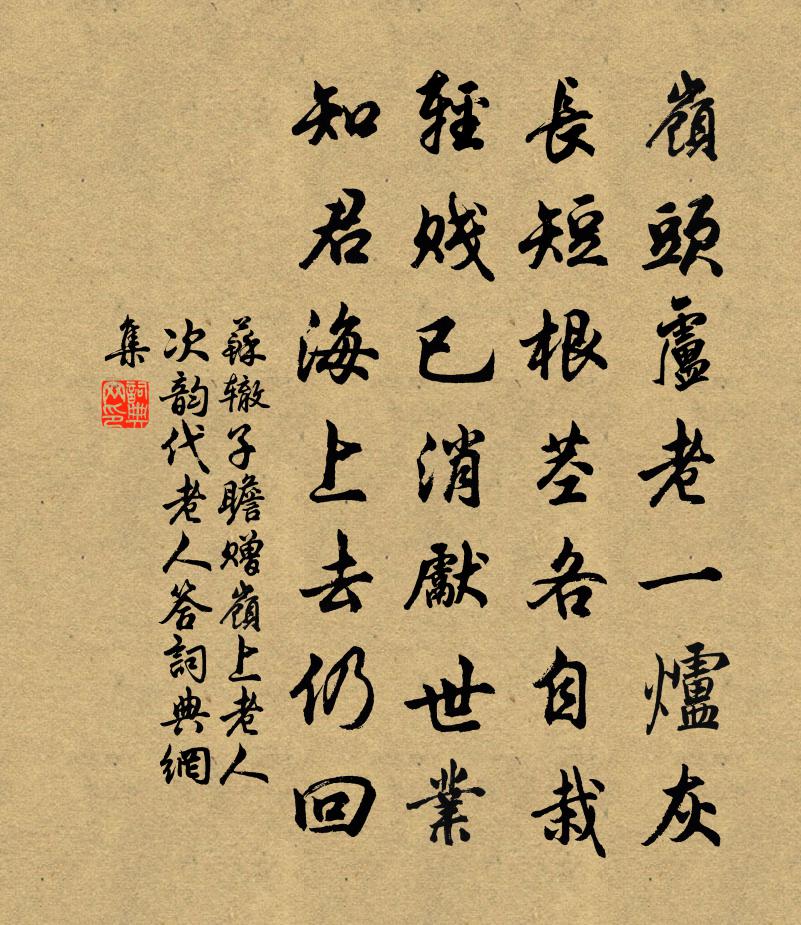 嶺頭盧老一爐灰
長短根莖各自栽
輕賤已消獻世業
知君海上去仍回
蘇轍子瞻贈嶺上老人
次韵代老人答詞典網
集
詞典
网印